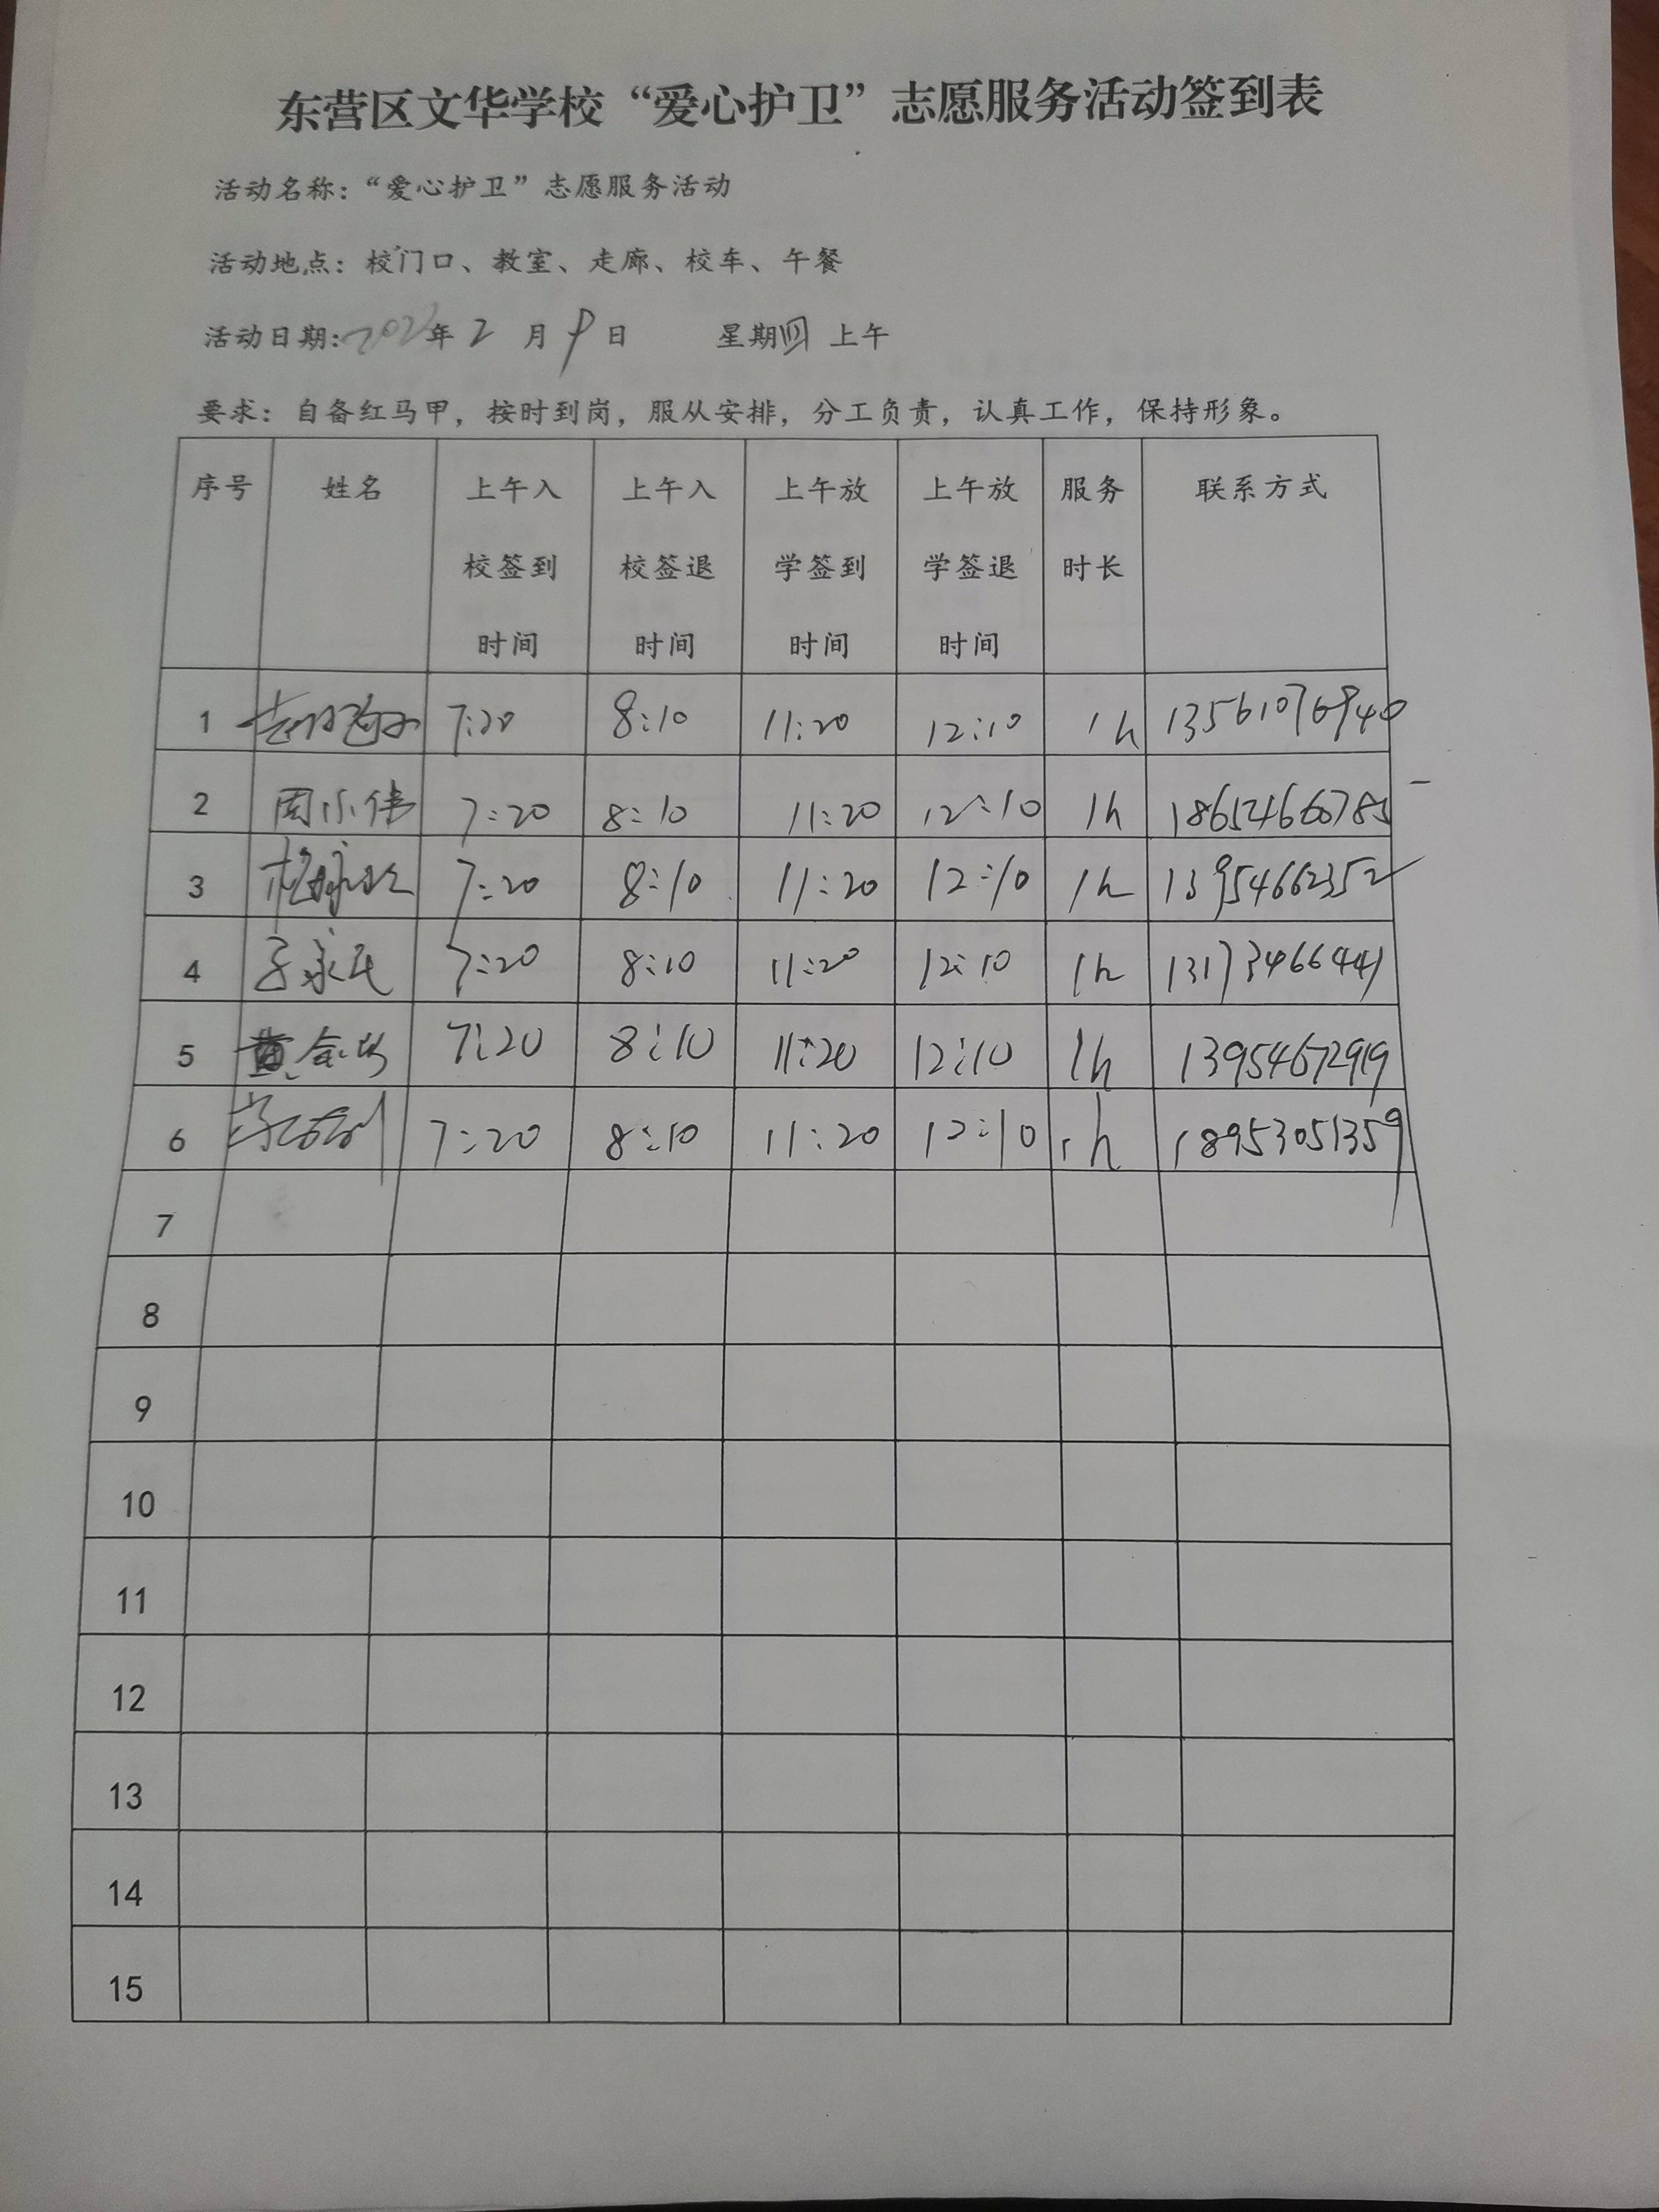 东营区文华学校“爱心护卫”志愿服务活动签到表
活动名称：“爱心护卫”志愿服务活动
活动地点：校门口、教室、走廊、校车、午餐
活动日期： 年 2 月 9 日 星期四 上午
要求：自备红马甲，按时到岗，服从安排，分工负责，认真工作，保持形象。
序号 姓名 上午入校签到时间 上午入校签退时间 上午放学签到时间 上午放学签退时间 服务时长 联系方式
1 7:20 8:10 11:20 12:10 1h 13561076940
2 周小伟 7:20 8:10 11:20 12:10 1h
3 7:20 8:10 11:20 12:10 1h 13954662352
4 7:20 8:10 11:20 12:10 1h 13173466441
5 黄 7:20 8:10 11:20 12:10 1h 13954672919
6 7:20 8:10 11:20 12:10 1h 18953051359
7
8
9
10
11
12
13
14
15